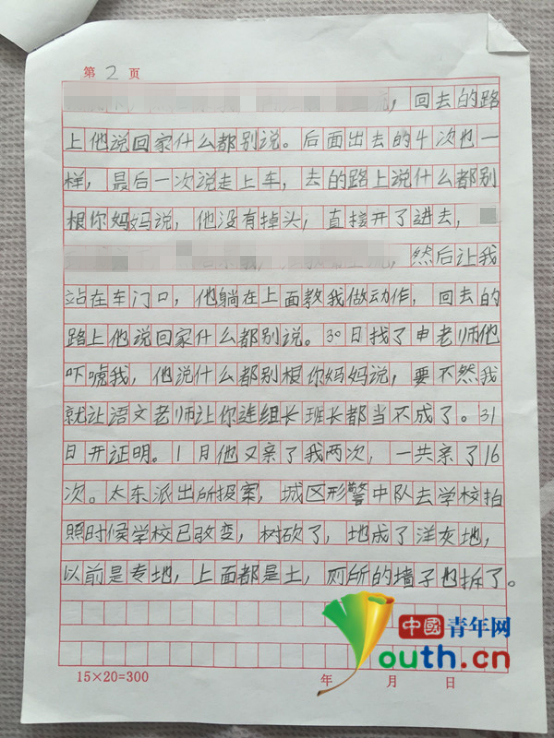 第 2 页
，回去的路
上他说回家什么都别说。后面出去的4次也一
样，最后一次说走上车，去的路上说什么都别
根你妈妈说，他没有掉头；直接开了进去，
，然后让我
站在车门口，他躺在上面教我做动作，回去的
路上他说回家什么都别说。30日找了申老师他
吓唬我，他说什么都别根你妈妈说，要不然我
就让语文老师让你连组长班长都当不成了。31
日开证明。1月他又亲了我两次，一共亲了16
次。太东派出所投案，城区形警中队去学校拍
照时候学校已改变，树砍了，地成了洋灰地，
以前是专地，上面都是土，厕所的墙子也拆了。
中國青年网
outh.cn
15×20=300
年 月 日